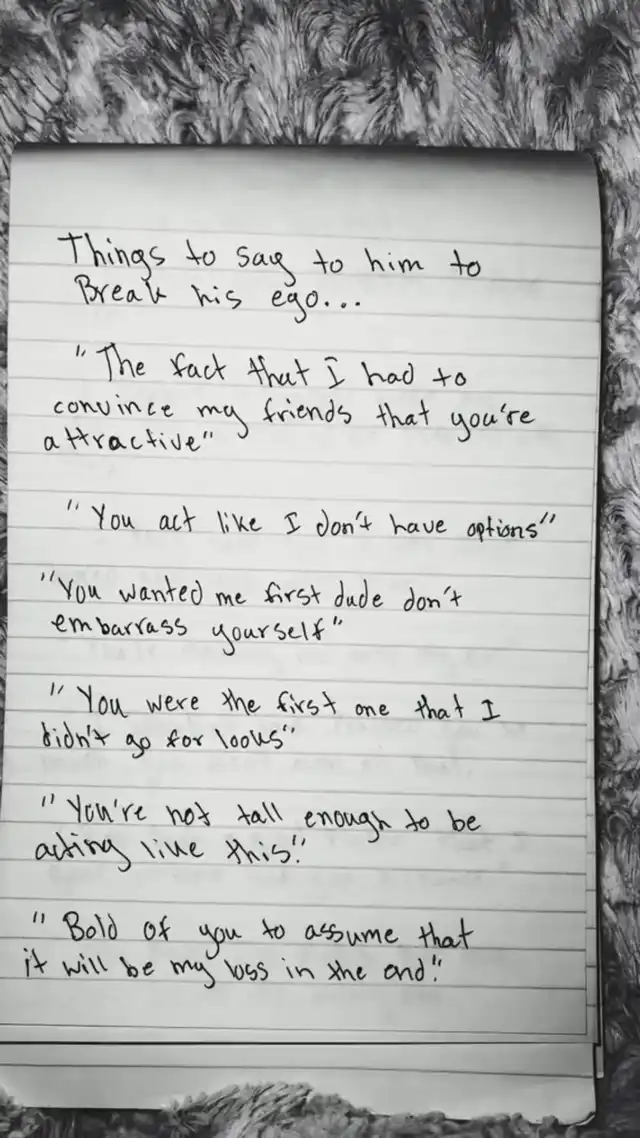 Things to say to him to
Break his ego...
"The fact that I had to
convince my friends that you're
attractive"
"You act like I don't have options"
"You wanted me first dude don't
embarrass yourself"
"You were the first one that I
didn't go for looks"
"You're not tall enough to be
acting like this."
"Bold of you to assume that
it will be my loss in the end."